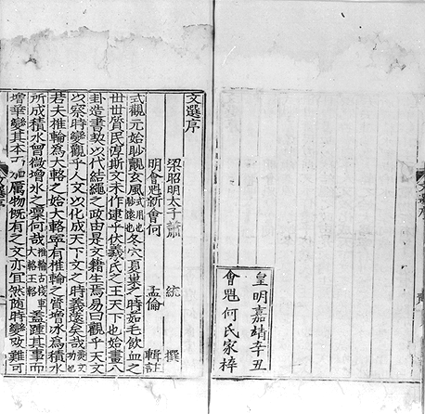 皇明嘉靖辛丑
會魁何氏家梓
文選序
梁昭明太子蕭統撰
明會魁新會何孟倫輯註
式觀元始眇覿玄風式用也眇遠也冬穴夏巢之時茹毛飲血之
世世質民淳斯文未作逮乎伏羲氏之王天下也始畫八
卦造書契以代結繩之政由是文籍生焉易曰觀乎天文
以察時變觀乎人文以化成天下文之時義遠矣哉
若夫椎輪為大輅之始大輅寧有椎輪之質增冰為積水
所成積水曾微增冰之凜何哉椎輪古棧車大輅玉輅蓋踵其事而
增華變其本而加厲物既有之文亦宜然隨時變改難可